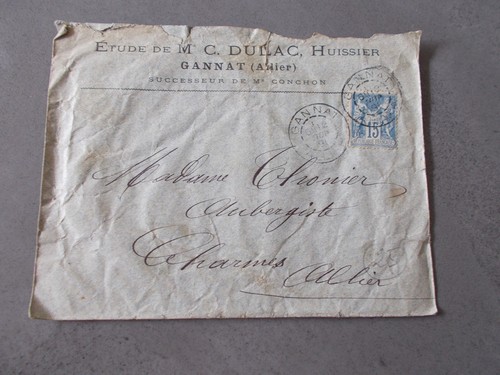 ETUDE DE M C. DULAC, HUISSIER
GANNAT (Allier)
SUCCESSEUR DE Me CONCHON
GANNAT
GANNAT
15
Madame Thonier
Aubergiste
Charmes
Allier